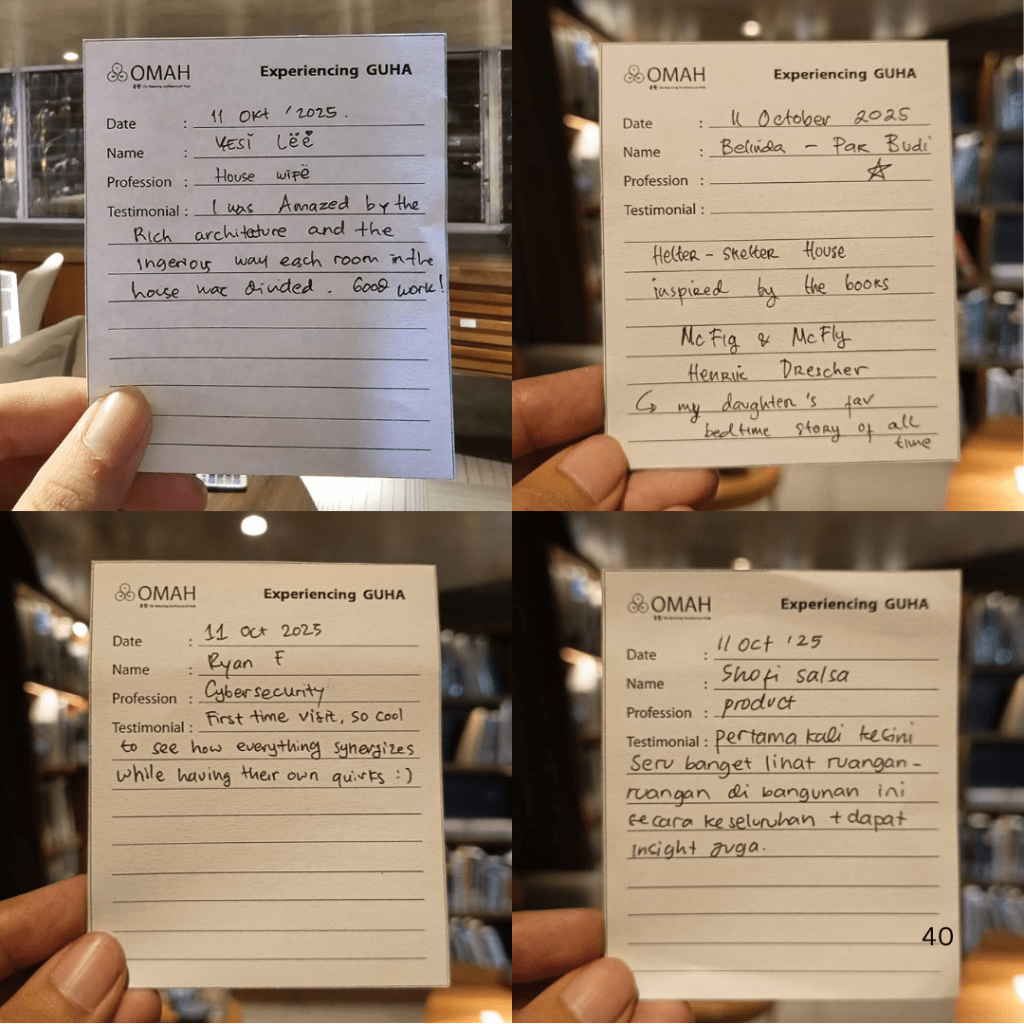 OMAH
Experiencing GUHA
Date : 11 Okt '2025.
Name : Kesi Lëë
Profession : House wipë
Testimonial : I was Amazed by the
Rich architecture and the
Ingenious way each room in the
house was divided. Good work!
OMAH
Experiencing GUHA
Date : 11 October 2025
Name : Belinda - Pak Budi
Profession :
Testimonial :
Helter - Skelter House
inspired by the books
McFig & McFly
Henrik Drescher
my daughter's fav
bedtime story of all
time
OMAH
Experiencing GUHA
Date : 11 Oct 2025
Name : Ryan F
Profession : Cybersecurity
Testimonial : First time visit, so cool
to see how everything synergizes
while having their own quirks :)
OMAH
Experiencing GUHA
Date : 11 Oct '25
Name : Shofi salsa
Profession : product
Testimonial : pertama kali kesini
Seru banget lihat ruangan-
ruangan di bangunan ini
secara keseluruhan + dapat
insight juga.
40